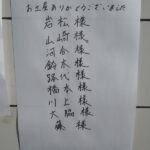 お土産ありがとうございました
岩松様
山崎様
河合様
鈴木様
路代様
橋本様
川上様
大脇様
藤様